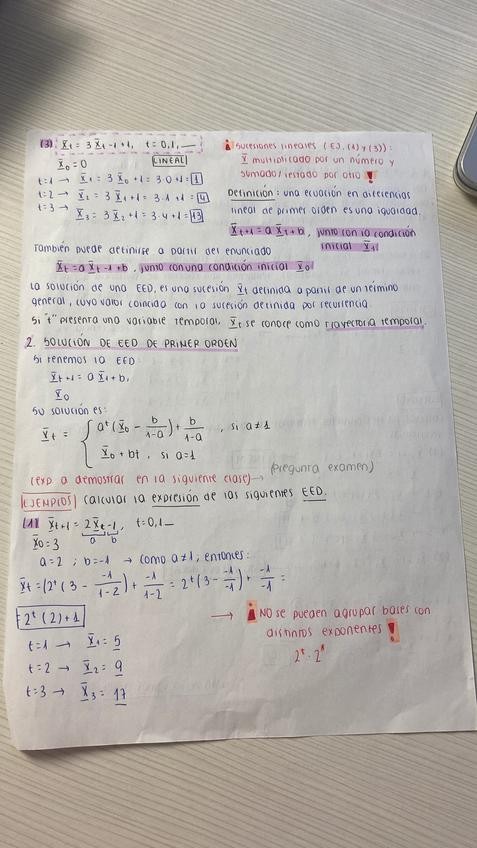 (3) X̄t = 3 X̄t-1 +1, t = 0,1, __
X̄0 = 0 LINEAL
t=1 → X̄1 = 3 X̄0 +1 = 3·0 +1 = 1
t=2 → X̄2 = 3 X̄1 +1 = 3·1 +1 = 4
t=3 → X̄3 = 3 X̄2 +1 = 3·4 +1 = 13
¡ Sucesiones lineales (EJ. (1) y (3)):
X̄ multiplicado por un número y
sumado/restado por otro !
Definición: una ecuación en diferencias
lineal de primer orden es una igualdad.
X̄t+1 = a X̄t + b, junto con la condición
inicial X̄1
También puede definirse a partir del enunciado
X̄t = a X̄t-1 + b, junto con una condición inicial X̄0
La solución de una EED, es una sucesión X̄t definida a partir de un término
general, cuyo valor coincida con la sucesión definida por recurrencia.
Si "t" presenta una variable temporal, X̄t se conoce como trayectoria temporal.
2. SOLUCIÓN DE EED DE PRIMER ORDEN
Si tenemos la EED:
X̄t+1 = a X̄t + b,
X̄0
Su solución es:
X̄t = { a^t (X̄0 - b/1-a) + b/1-a , si a≠1
X̄0 + bt, si a=1
(exp. a demostrar en la siguiente clase) → (Pregunta examen)
EJEMPLOS Calcular la expresión de las siguientes EED.
(1) X̄t+1 = 2X̄t -1, t = 0,1 __
a b
X̄0 = 3
a = 2 ; b = -1 → Como a≠1, entonces:
X̄t = (2^t (3 - -1/1-2) + -1/1-2 = 2^t (3 - -1/-1) + -1/-1 =
= 2^t (2) + 1
t=1 → X̄1 = 5
t=2 → X̄2 = 9
t=3 → X̄3 = 17
→ ¡ NO se pueden agrupar bases con
distintos exponentes !
2^t · 2^1